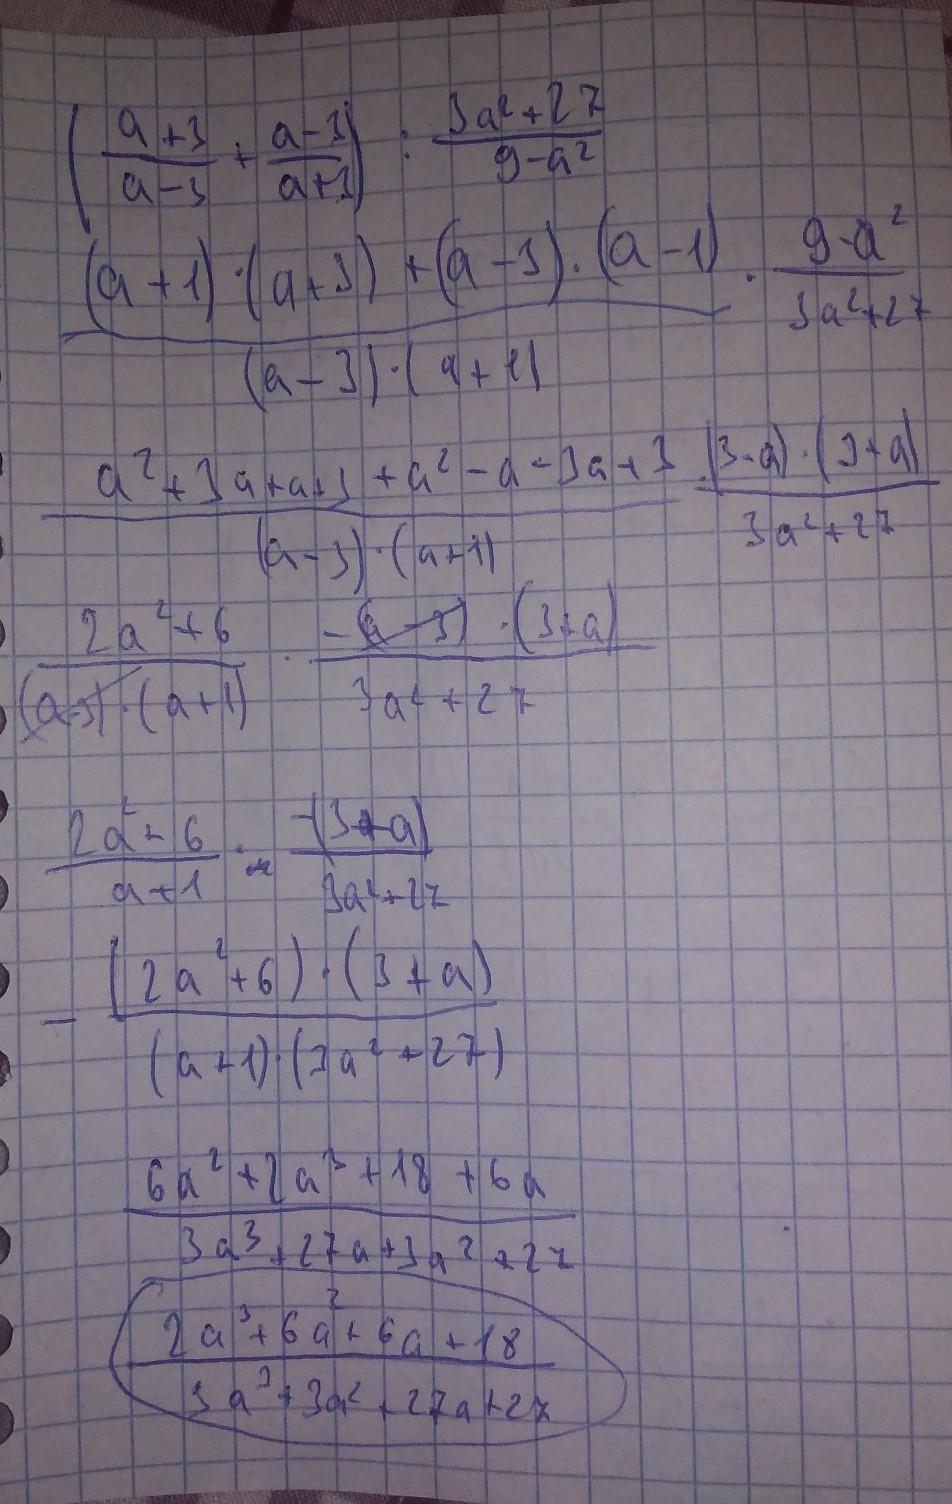 (a+3/a-3 + a-3/a+3) : 3a²+27/9-a²
(a+1)·(a+3)+(a-3)·(a-1)/(a-3)·(a+1) · 9-a²/3a²+27
a²+3a+a+3+a²-a-3a+3/(a-3)·(a+1) · (3-a)·(3+a)/3a²+27
2a²+6/(a-3)·(a+1) · -(a-3)·(3+a)/3a²+27
2a²+6/a+1 · -(3+a)/3a²+27
- (2a²+6)·(3+a)/(a+1)·(3a²+27)
6a²+2a³+18+6a/3a³+27a+3a²+27
2a³+6a²+6a+18/3a³+3a²+27a+27